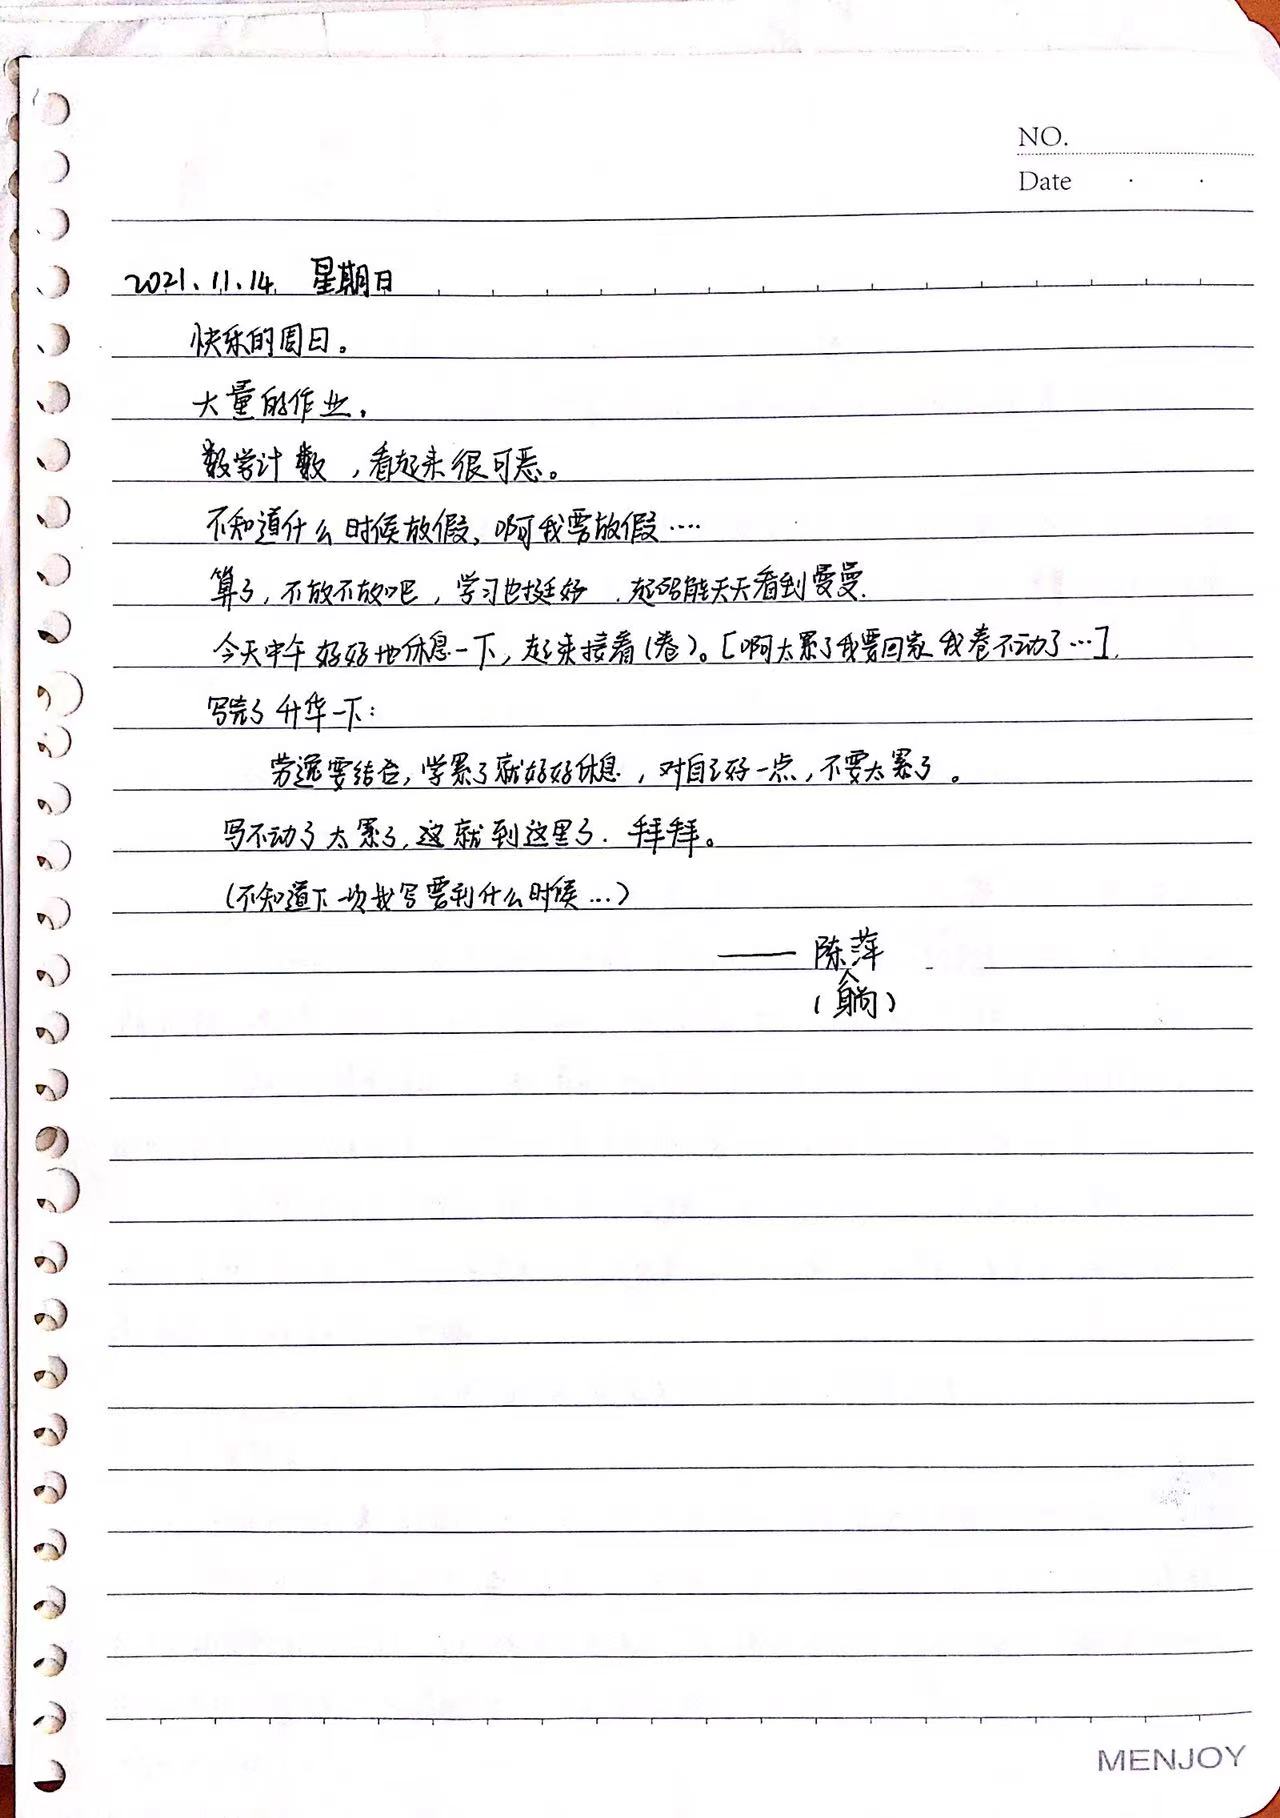 NO.
Date
2021.11.14 星期日
快乐的周日。
大量的作业.
数学计数,看起来很可恶。
不知道什么时候放假,啊我要放假....
算了,不放不放吧,学习也挺好.起码能天天看到曼曼.
今天中午好好地休息一下,起来接着(卷)。[啊太累了我要回家我卷不动了...].
写完了升华一下:
劳逸要结合,学累了就好好休息,对自己好一点,不要太累了。
写不动了太累了,这就到这里了.拜拜。
(不知道下一次我写要到什么时候...)
——陈萍
(躺)
MENJOY